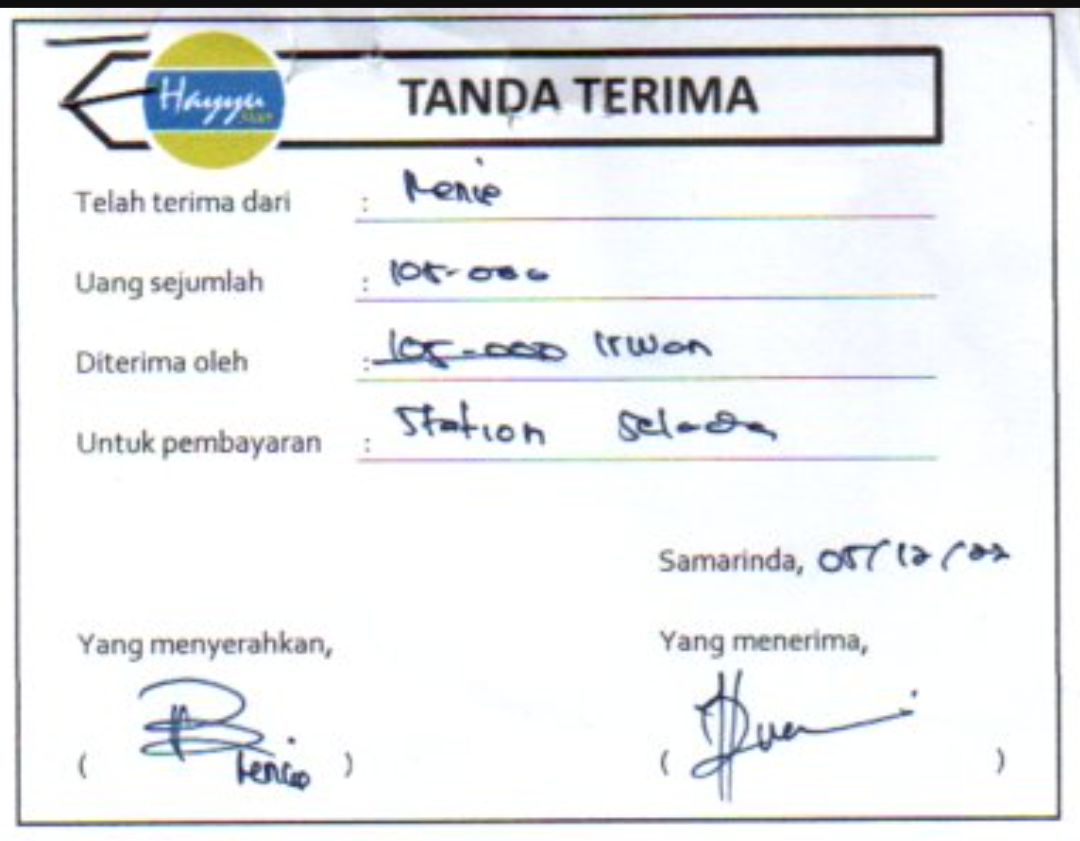 Hayyu
TANDA TERIMA
Telah terima dari : Renie
Uang sejumlah : 105.000
Diterima oleh : 105.000 Irwan
Untuk pembayaran : Station Selada
Samarinda, 05/12/22
Yang menyerahkan,
Yang menerima,
( Renie )
( )